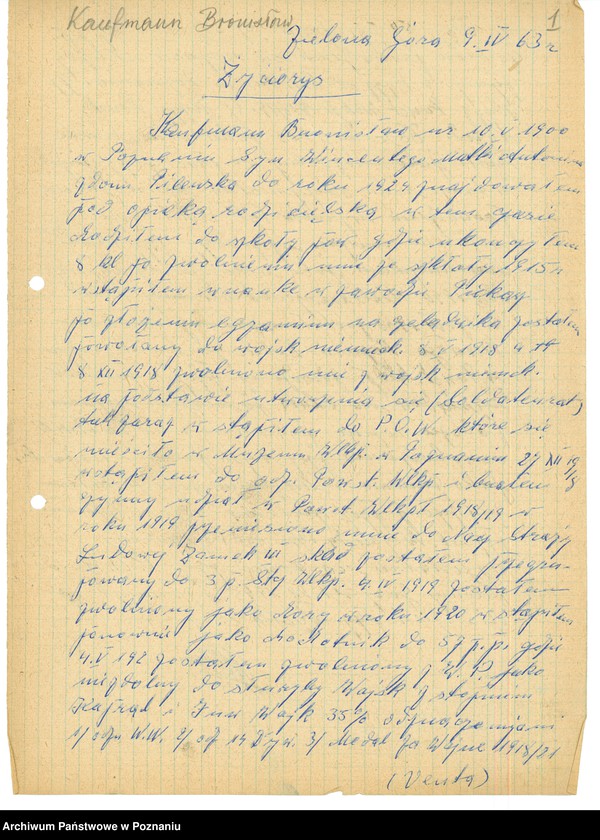 Kaufmann Bronisław
1
Zielona Góra 9. IV 63 r
Życiorys
Kaufmann Bronisław ur 10. V 1900
w Poznaniu Syn Wincentego Matki Antonina
z domu Pilewska do roku 1924 znajdowałem
pod opieką rodzicielską w tem czasie
chodziłem do szkoły pow. gdzie ukończyłem
8 kl po zwolnieniu mnie ze szkoły 1915 r
wstąpiłem w naukę w zawodzie Piekarz
po złożeniu egzaminu na czeladnika zostałem
powołany do wojsk niemieck. 8 V 1918 a
8 XII 1918 zwolniono mnie z wojsk niemek.
na podstawie utworzenia się (Soldatenrat)
tak zaraz wstąpiłem do P.O.W. które się
mieściło w Muzeum Wlkp. w Poznaniu 27 XII 1918
wstąpiłem do od. Powst. Wlkp i brałem
czynny udział w Powst. Wlkp 1918/19 w
roku 1919 przeniesiono mnie do
Ludowej Zamek III skąd zostałem
do 3 p. Wlkp. 4. IV 1919 zostałem
zwolniony jako chory w roku 1920 wstąpiłem
ponownie jako ochotnik do 57 p.p. gdzie
4. V 192 zostałem zwolniony z W. P jako
niezdolny do służby Wojsk z stopniem
Kapral i Inw Wojk 35% odznaczeniami
1/ W.W. 2/ 14 Dyw. 3/ Medal za Wojnę 1918/21
(Verta)
Archiwum Państwowe w Poznaniu